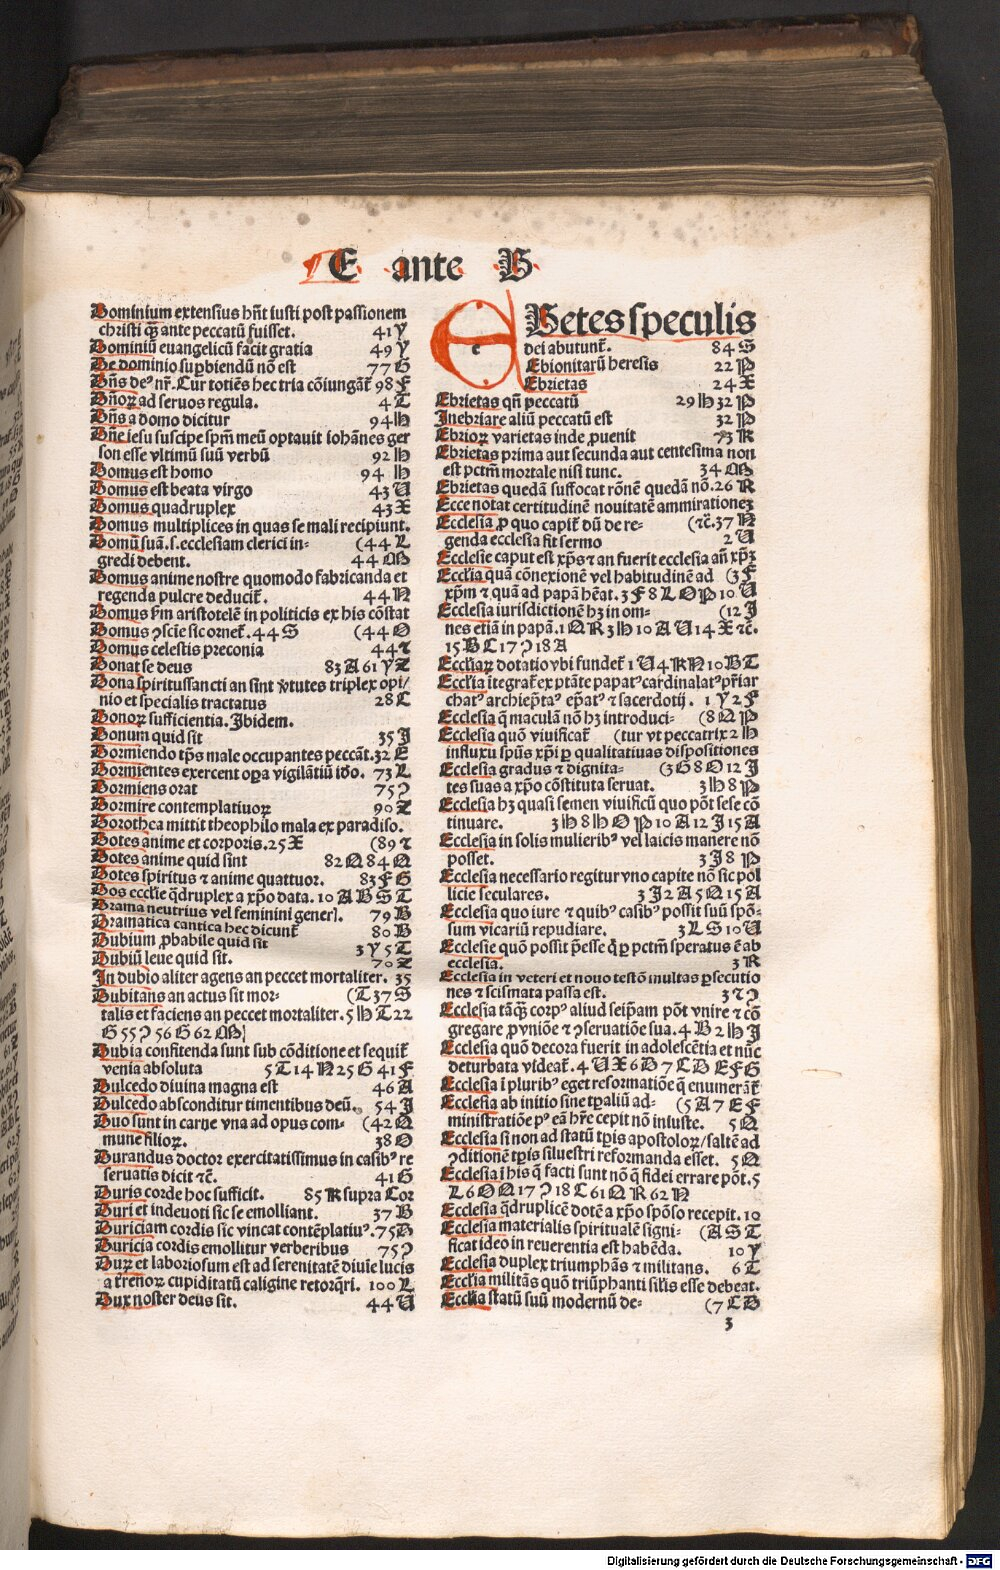 E ante B
Dominium extensius hñt iusti post passionem
christi qȝ ante peccatū fuisset. 41 Y
Dominiū euangelicū facit gratia 49 Y
De dominio suꝑbiendū nō est 77 G
Dñs de⁹ nr̄. Cur totiēs hec tria cōiungāt᷑ 98 F
Dñoꝝ ad seruos regula. 4 T
Dñs a domo dicitur 94 H
Dñe iesu suscipe spm̄ meū optauit iohānes ger
son esse vltimū suū verbū 92 H
Domus est homo 94 H
Domus est beata virgo 43 U
Domus quadruplex 43 X
Domus multiplices in quas se mali recipiunt.
Domū suā.s.ecclesiam clerici in- (44 L
gredi debent. 44 M
Domus anime nostre quomodo fabricanda et
regenda pulcre deducit᷑. 44 N
Domus ẜm aristotelē in politicis ex his cōstat
Domus ꝯscie sic ornet᷑. 44 S (44 O
Domus celestis preconia 44 ⁊
Donat se deus 83 A 61 Y Z
Dona spiritussancti an sint v̓tutes triplex opi/
nio et specialis tractatus 28 C
Donoꝝ sufficientia. Ibidem.
Donum quid sit 35 I
Dormiendo tp̄s male occupantes peccāt. 32 E
Dormientes exercent oꝑa vigilātiū ido. 73 L
Dormiens orat 75 ꝯ
Dormire contemplatiuoꝝ 90 Z
Dorothea mittit theophilo mala ex paradiso.
Dotes anime et corporis. 25 X (89 ⁊
Dotes anime quid sint 82 Q 84 Q
Dotes spiritus ⁊ anime quattuor. 83 F G
Dos eccl̄ie q̄druplex a xp̄o data. 10 A B S T
Drama neutrius vel feminini gener̄. 79 B
Dramatica cantica hec dicunt᷑ 80 B
Dubium ꝓbabile quid sit 3 Y 5 T
Dubiū leue quid sit. 70 Z
In dubio aliter agens an peccet mortaliter. 35
Dubitans an actus sit mor- (T 37 S
talis et faciens an peccet mortaliter. 5 H T 22
G 55 ꝯ 56 G 62 M
Dubia confitenda sunt sub cōditione et sequit᷑
venia absoluta 5 T 14 N 25 G 41 F
Dulcedo diuina magna est 46 A
Dulcedo absconditur timentibus deū. 54 I
Duo sunt in carne vna ad opus com- (42 Q
mune filioꝝ. 38 O
Durandus doctor exercitatissimus in casib⁹ re
seruatis dicit ⁊c̄. 41 G
Duris corde hoc sufficit. 85 K supra Cor
Duri et indeuoti sic se emolliant. 37 B
Duriciam cordis sic vincat contēplatiu⁹. 75 D
Duricia cordis emollitur verberibus 75 ꝯ
Duꝝ et laboriosum est ad serenitatē diuīe lucis
a t̓renoꝝ cupiditatū caligine retorq̄ri. 100 L
Dux noster deus sit. 44 U
EBetes speculis
dei abutunt᷑. 84 S
Ebionitarū heresis 22 P
Ebrietas 24 X
Ebrietas qn̄ peccatū 29 H 32 P
Inebriare aliū peccatū est 32 P
Ebrioꝝ varietas inde ꝓuenit 73 K
Ebrietas prima aut secunda aut centesima non
est pctm̄ mortale nisi tunc. 34 M
Ebrietas quedā suffocat rōnē quedā nō. 26 R
Ecce notat certitudinē nouitatē ammirationeȝ
Ecclesia ꝓ quo capit᷑ dū de re- (⁊c̄. 37 N
genda ecclesia fit sermo 2 U
Ecclesie caput est xp̄s ⁊ an fuerit ecclesia añ xp̄ȝ
Eccl̄ia quā cōnexionē vel habitudinē ad (3 F
xp̄m ⁊ quā ad papā hēat. 3 F 8 L O P 10 U
Ecclesia iurisdictionē hȝ in om- (12 I
nes etiā in papā. 1 Q R 3 H 10 A U 14 X ⁊c̄.
15 B C 17 ꝯ 18 A
Eccl̄iaꝝ dotatio vbi fundet᷑ 1 U 4 K N 10 B T
Eccl̄ia ītegrat᷑ ex ptāte papat⁹ cardinalat⁹ pr̄iar
chat⁹ archiep̄at⁹ ep̄at⁹ ⁊ sacerdotij. 1 Y 2 F
Ecclesia q̄ maculā nō hȝ introduci- (8 Q P
Ecclesia quō viuificat᷑ (tur vt peccatrix 2 H
influxu sp̄us xp̄i ꝑ qualitatiuas dispositiones
Ecclesia gradus ⁊ dignita- (3 G 8 O 12 I
tes suas a xp̄o cōstituta seruat. 3 H 8 P
Ecclesia hȝ quasi semen viuificū quo pōt sese cō
tinuare. 3 H 8 H O P 10 A 12 I 15 A
Ecclesia in solis mulierib⁹ vel laicis manere nō
posset. 3 I 8 P
Ecclesia necessario regitur vno capite nō sic pol
licie seculares. 3 I 2 A 5 Q 15 A
Ecclesia quo iure ⁊ quib⁹ casib⁹ possit suū spō-
sum vicariū repudiare. 3 L S 10 U
Ecclesie quō possit p̄esse q̄ ꝑ pctm̄ speratus ē ab
ecclesia. 3 R
Ecclesia in veteri et nouo testō multas ꝑsecutio
nes ⁊ scismata passa est. 3 ⁊ ꝯ
Ecclesia tāqȝ corp⁹ aliud seip̄am pōt vnire ⁊ cō
gregare ꝓ vniōe ⁊ ꝯseruatiōe sua. 4 B 2 H I
Ecclesia quō decora fuerit in adolescētia et nūc
deturbata videat᷑. 4 U X 6 D 7 C D E F G
Ecclesia ī plurib⁹ eget reformatiōe q̄ enumerāt᷑
Ecclesia ab initio sine tꝑaliū ad- (5 A 7 E F
ministratiōe p⁹ eā hr̄e cepit nō iniuste. 5 Q
Ecclesia si non ad statū tꝑis apostoloꝝ/saltē ad
ꝯditionē tꝑis siluestri reformanda esset. 5 Q
Ecclesia ī his q̄ facti sunt nō q̄ fidei errare pōt. 5
L 6 O Q 17 ꝯ 18 C 61 Q R 62 N
Ecclesia q̄druplicē dotē a xp̄o spōso recepit. 10
Ecclesia materialis spiritualē signi- (A S T
ficat ideo in reuerentia est habēda. 10 Y
Ecclesia duplex triumphās ⁊ militans. 6 T
Eccl̄ia militās quō triūphanti sil̄is esse debeat.
Eccl̄ia statū suū modernū de- (7 C D
3
Digitalisierung gefördert durch die Deutsche Forschungsgemeinschaft - DFG